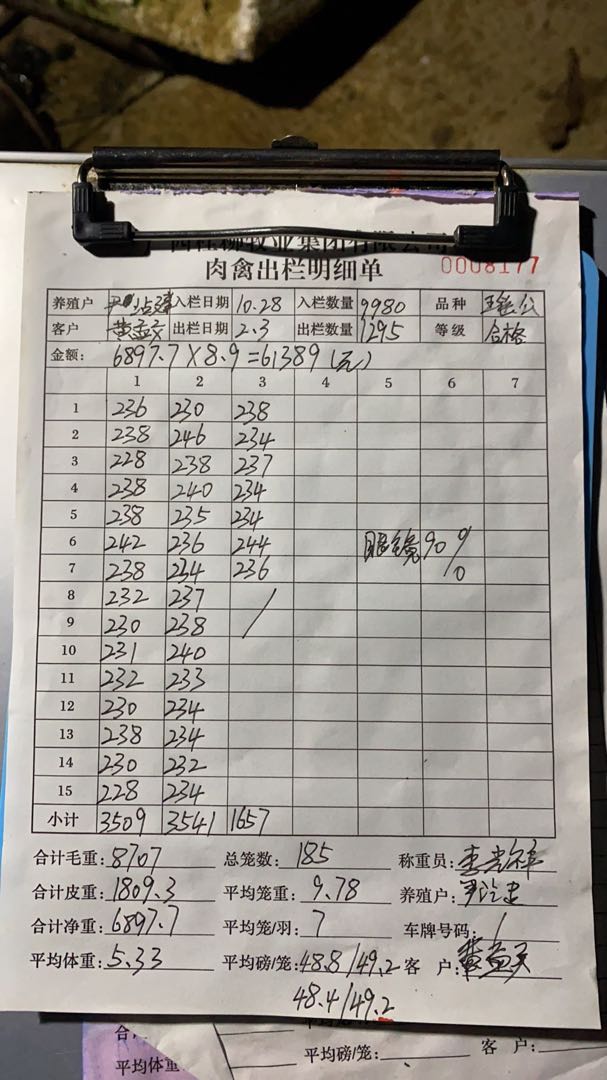 牧业集团有限公司
肉禽出栏明细单 0008177
养殖户 入栏日期 10.28 入栏数量 9980 品种
客户 黄孟交 出栏日期 2.3 出栏数量 1295 等级 合格
金额: 6897.7×8.9=61389(元)
1 2 3 4 5 6 7
1 236 230 238
2 238 246 234
3 228 238 237
4 238 240 234
5 238 235 234
6 242 236 244 眼镜90%
7 238 234 236
8 232 237 /
9 230 238
10 231 240
11 232 233
12 230 234
13 238 234
14 230 232
15 228 234
小计 3509 3541 1657
合计毛重: 8707 总笼数: 185 称重员:
合计皮重: 1809.3 平均笼重: 9.78 养殖户:
合计净重: 6897.7 平均笼/羽: 7 车牌号码: /
平均体重: 5.33 平均磅/笼: 48.8/49.2 客 户:
48.4/49.2
平均体重 平均磅/笼: 客 户: